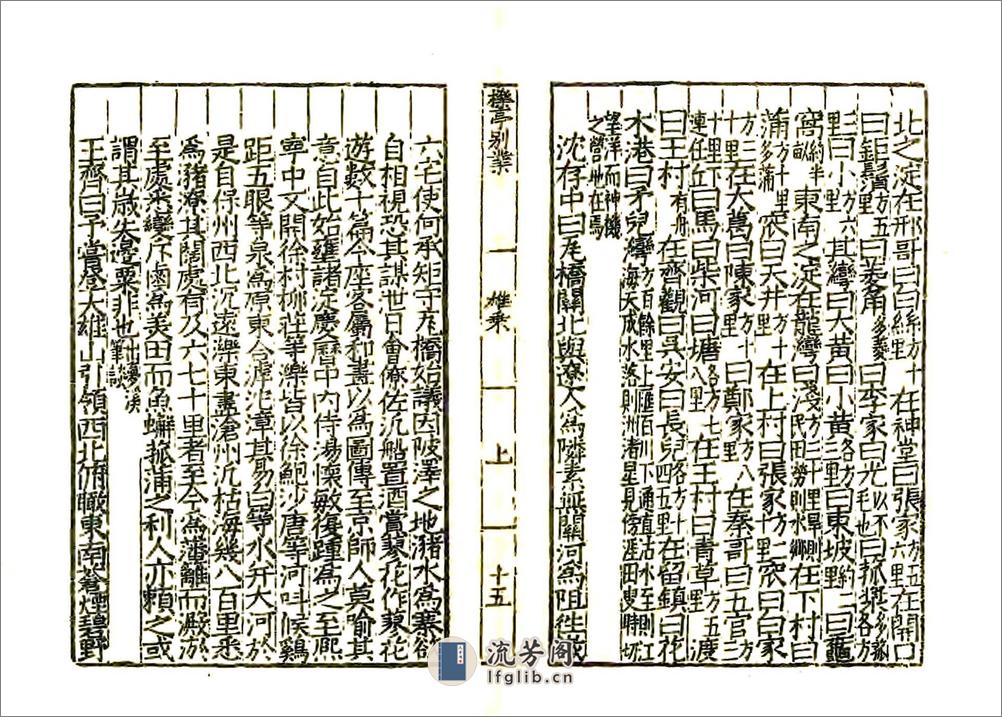 北之淀在邢哥曰曰絲方十里在神堂曰張家方五六里在開口
曰鬍鬚方五里曰菱角多菱曰李家曰光以不毛也曰菰箕多菰各方
二三里曰小里方六里其灣曰大黄曰小黄各方三里曰東坡約野二曰龜
窩約半畝東南之淀在龍灣曰淺方二十里旱則民田澇則水鄉在下村曰
蒲方十里多蒲衣曰天井方十里在上村曰張家方十二里衣曰白家
方三十里在大萬曰陳家方十里曰鄭家方八里在秦哥曰五官方三
十里連任丘曰馬曰柴河曰塘各方七八里在王村曰青草方五里渡
曰王村有舟在齊觀曰吳安曰長兒四五里各方十里在留鎮曰花
水港曰矛兒灣方百餘里上匯百川下通直沽水至則江海大成水落則洲渚星見傍涯田叟時切
望洋而神機之營地在焉
沈存中曰瓦橋關北與遼人為隣素無關河為阻徃歲
六宅使何承矩守瓦橋始議因陂澤之地瀦水為寨欲
自相視恐其謀世日會僚佐汎船置酒賞蓼花作蓼花
遊數十篇令座客屬和畫以為圖傳至京師人莫喻其
意自此始壅諸淀慶曆中内侍楊懷敏復踵為之至熙
寧中又開徐村柳莊等濼皆以徐鮑沙唐等河叫候鷄
距五眼等泉為源東合滹沱漳淇易白等水并大河於
是自保州西北沉遠濼東盡滄州沉枯海幾八百里悉
為瀦潦其闊處有及六七十里者至今為藩籬而澱淤
至處柒變斥鹵為美田而魚蠏菰蒲之利人亦頼之或
謂其歲失邊粟非也出夢溪筆談
王齊曰予嘗登大雄山引領西北俯瞰東南蒼煙碧野
櫟亭别業
雄乘
上
十五
流芳阁
lfglib.cn